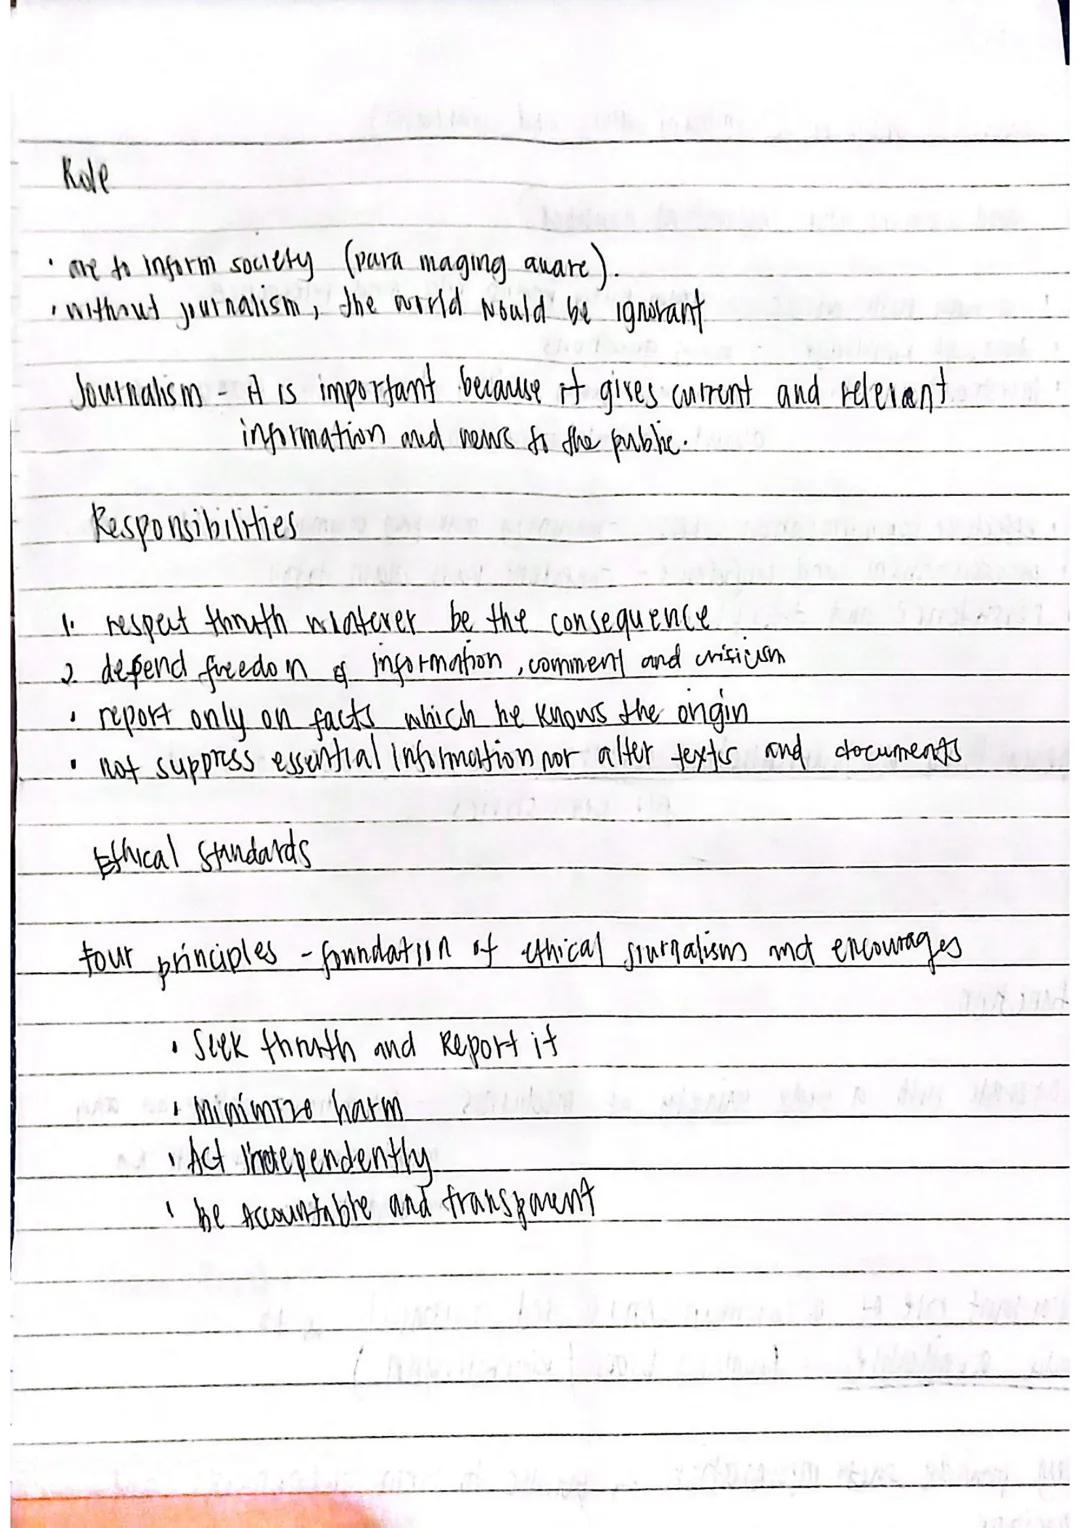 Role
• are to inform society (para maging aware).
• without journalism, the world would be ignorant
Journalism - it is important because it gives current and relevant
information and news to the public.
Responsibilities
1. respect thruth whatever be the consequence
2. defend freedom of information, comment and crisicism
• report only on facts which he knows the origin
• not suppress essential information nor alter texts and documents
Ethical Standards
Four principles - foundation of ethical journalism and encourages
• Seek thruth and Report it
• Minimize harm
• Act independently
• be Accountable and transparent